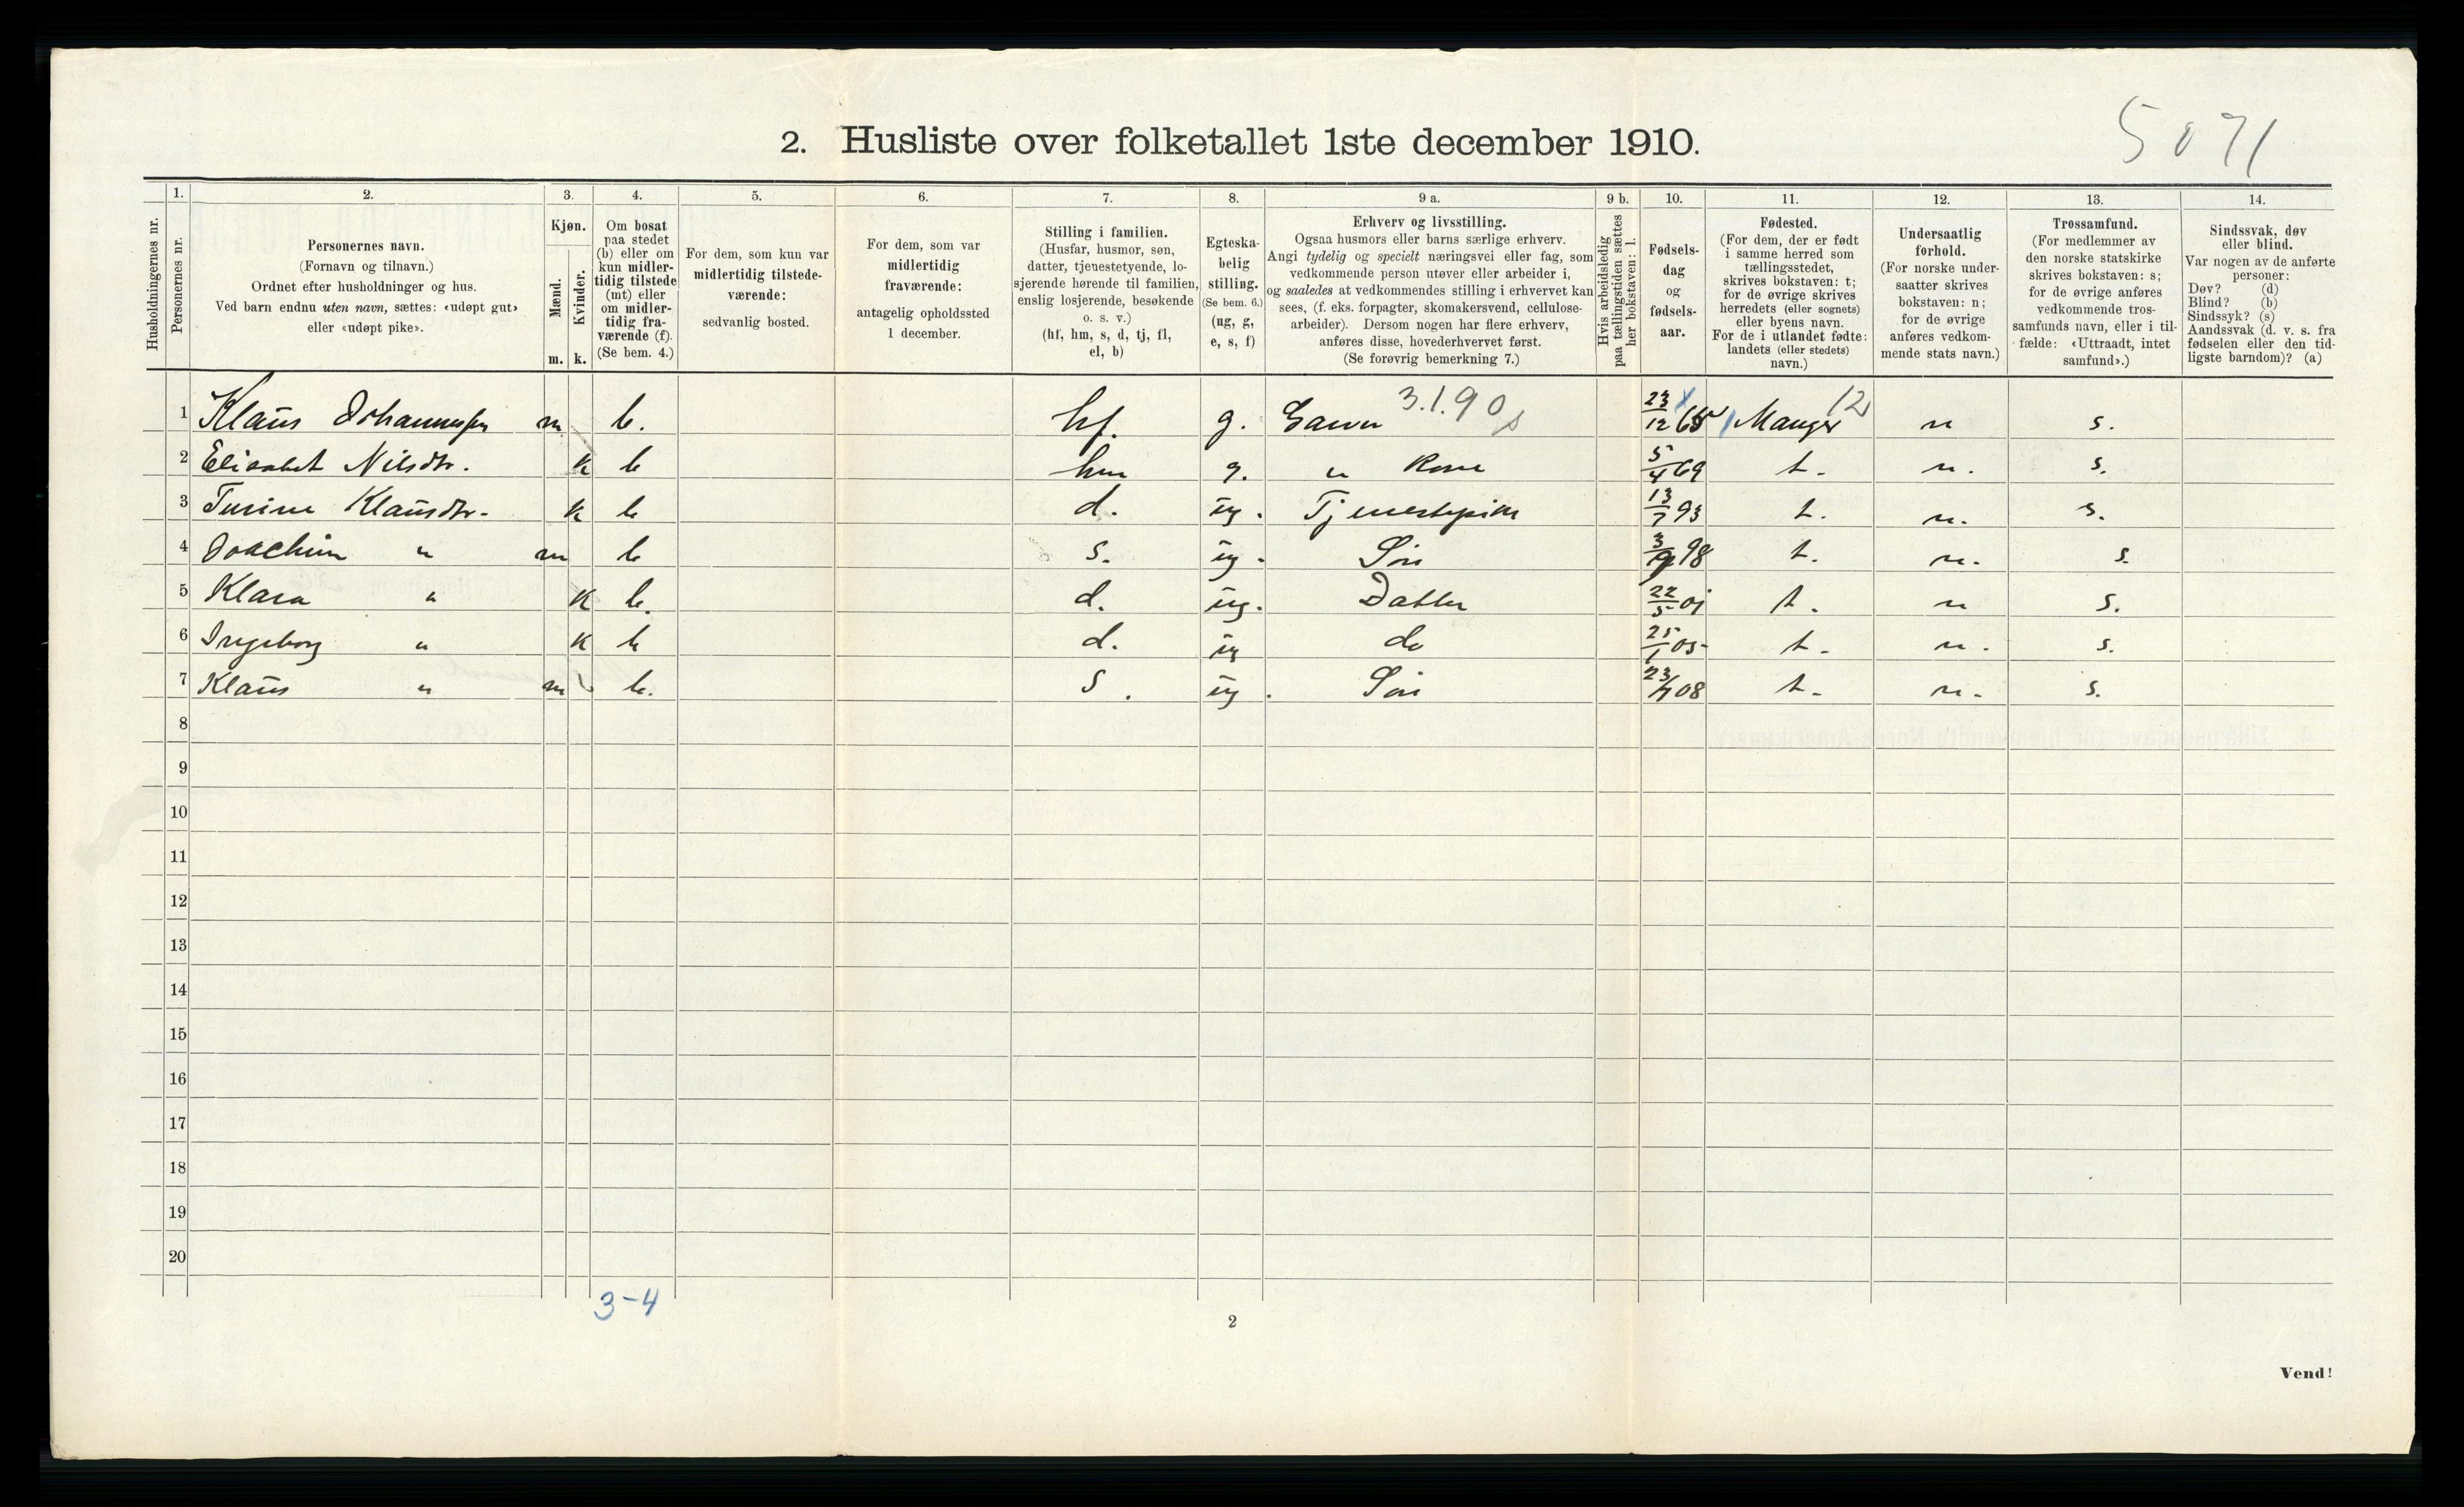 5071
2. Husliste over folketallet 1ste december 1910.
Husholdningernes nr.
1.
Personernes nr.
2.
Personernes navn.
(Fornavn og tilnavn.)
Ordnet efter husholdninger og hus.
Ved barn endnu uten navn, sættes: «udøpt gut»
eller «udøpt pike».
3.
Kjøn.
Mænd.
m.
Kvinder.
k.
4.
Om bosat
paa stedet
(b) eller om
kun midler-
tidig tilstede
(mt) eller
om midler-
tidig fra-
værende (f).
(Se bem. 4.)
5.
For dem, som kun var
midlertidig tilstede-
værende:
sedvanlig bosted.
6.
For dem, som var
midlertidig
fraværende:
antagelig opholdssted
1 december.
7.
Stilling i familien.
(Husfar, husmor, søn,
datter, tjenestetyende, lo-
sjerende hørende til familien,
enslig losjerende, besøkende
o. s. v.)
(hf, hm, s, d, tj, fl,
el, b)
8.
Egteska-
belig
stilling.
(Se bem. 6.)
(ug, g,
e, s, f)
9 a.
Erhverv og livsstilling.
Ogsaa husmors eller barns særlige erhverv.
Angi tydelig og specielt næringsvei eller fag, som
vedkommende person utøver eller arbeider i,
og saaledes at vedkommendes stilling i erhvervet kan
sees, (f. eks. forpagter, skomakersvend, cellulose-
arbeider). Dersom nogen har flere erhverv,
anføres disse, hovederhvervet først.
(Se forøvrig bemerkning 7.)
9 b.
Hvis arbeidsledig
paa tællingstiden sættes
her bokstaven: l.
10.
Fødsels-
dag
og
fødsels-
aar.
11.
Fødested.
(For dem, der er født
i samme herred som
tællingsstedet,
skrives bokstaven: t;
for de øvrige skrives
herredets (eller sognets)
eller byens navn.
For de i utlandet fødte:
landets (eller stedets)
navn.)
12.
Undersaatlig
forhold.
(For norske under-
saatter skrives
bokstaven: n;
for de øvrige
anføres vedkom-
mende stats navn.)
13.
Trossamfund.
(For medlemmer av
den norske statskirke
skrives bokstaven: s;
for de øvrige anføres
vedkommende tros-
samfunds navn, eller i til-
fælde: «Uttraadt, intet
samfund».)
14.
Sindssvak, døv
eller blind.
Var nogen av de anførte
personer:
Døv? (d)
Blind? (b)
Sindssyk? (s)
Aandssvak (d. v. s. fra
fødselen eller den tid-
ligste barndom)? (a)
1 Klaus Johannessen m b. hf. g. 3.1.90 23/12 65 Manger 12 n s.
2 Elisabet Nilsdtr. k b hm g. " Kone 5/4 69 t. n. s.
3 Turine Klausdtr. k b d. ug. Tjenestepike 13/7 93 t. n. s.
4 Joachim " m b s. ug. Søn 98 t. n. s.
5 Klara " k b. d. ug. Datter 22/5 01 t. n s.
6 Ingeborg " k b d. ug do 25/1 05 t. n. s.
7 Klaus " m b. s. ug. Søn 08 t. n. s.
8
9
10
11
12
13
14
15
16
17
18
19
20
3-4
2
Vend!